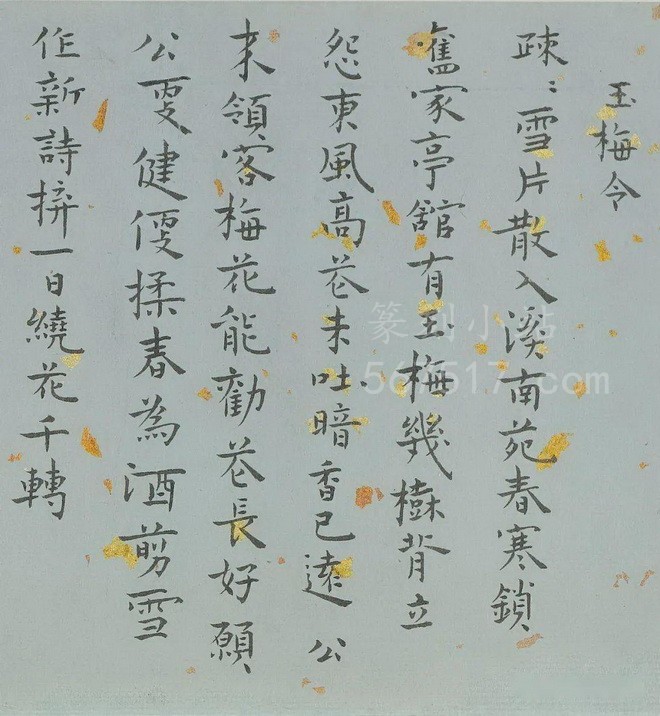 玉梅令
疎〻雪片散入溪南苑春寒鎖
舊家亭舘有玉梅幾樹背立
怨東風高花未吐暗香已遠 公
来領客梅花能勸花長好願
公更健便揉春為酒剪雪
作新詩拚一日繞花千轉
篆刻小站